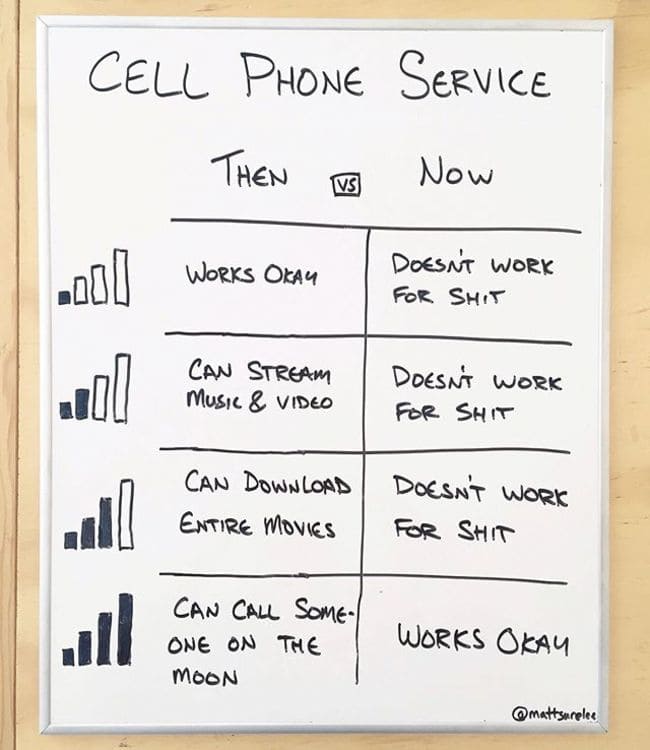 CELL PHONE SERVICE
THEN VS NOW
WORKS OKAY
DOESN'T WORK
FOR SHIT
CAN STREAM
MUSIC & VIDEO
DOESN'T WORK
FOR SHIT
CAN DOWNLOAD
ENTIRE MOVIES
DOESN'T WORK
FOR SHIT
CAN CALL SOME-
ONE ON THE
MOON
WORKS OKAY
@mattsurelee